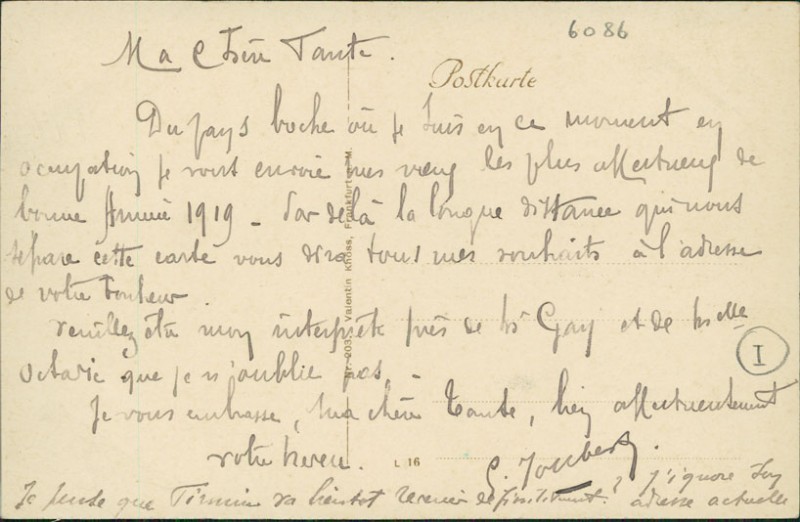 6086
Ma Chère Tante.
Postkarte
Du pays boche où je suis en ce moment en
occupation je vous envoie mes vœux les plus affectueux de
bonne Année 1919 - Par delà la longue distance qui nous
sépare cette carte vous dira tous mes souhaits à l'adresse
de votre bonheur.
Veuillez être mon interprète près de Mr Gay et de Melle
Octavie que je n'oublie pas. -
I
Je vous embrasse, ma chère Tante, bien affectueusement
votre neveu.
G. Joubert.
Je pense que va bientot revenir de j'ignore son
adresse actuelle
Nr. 203. Valentin Knöss, Frankfurt a. M.
L 16